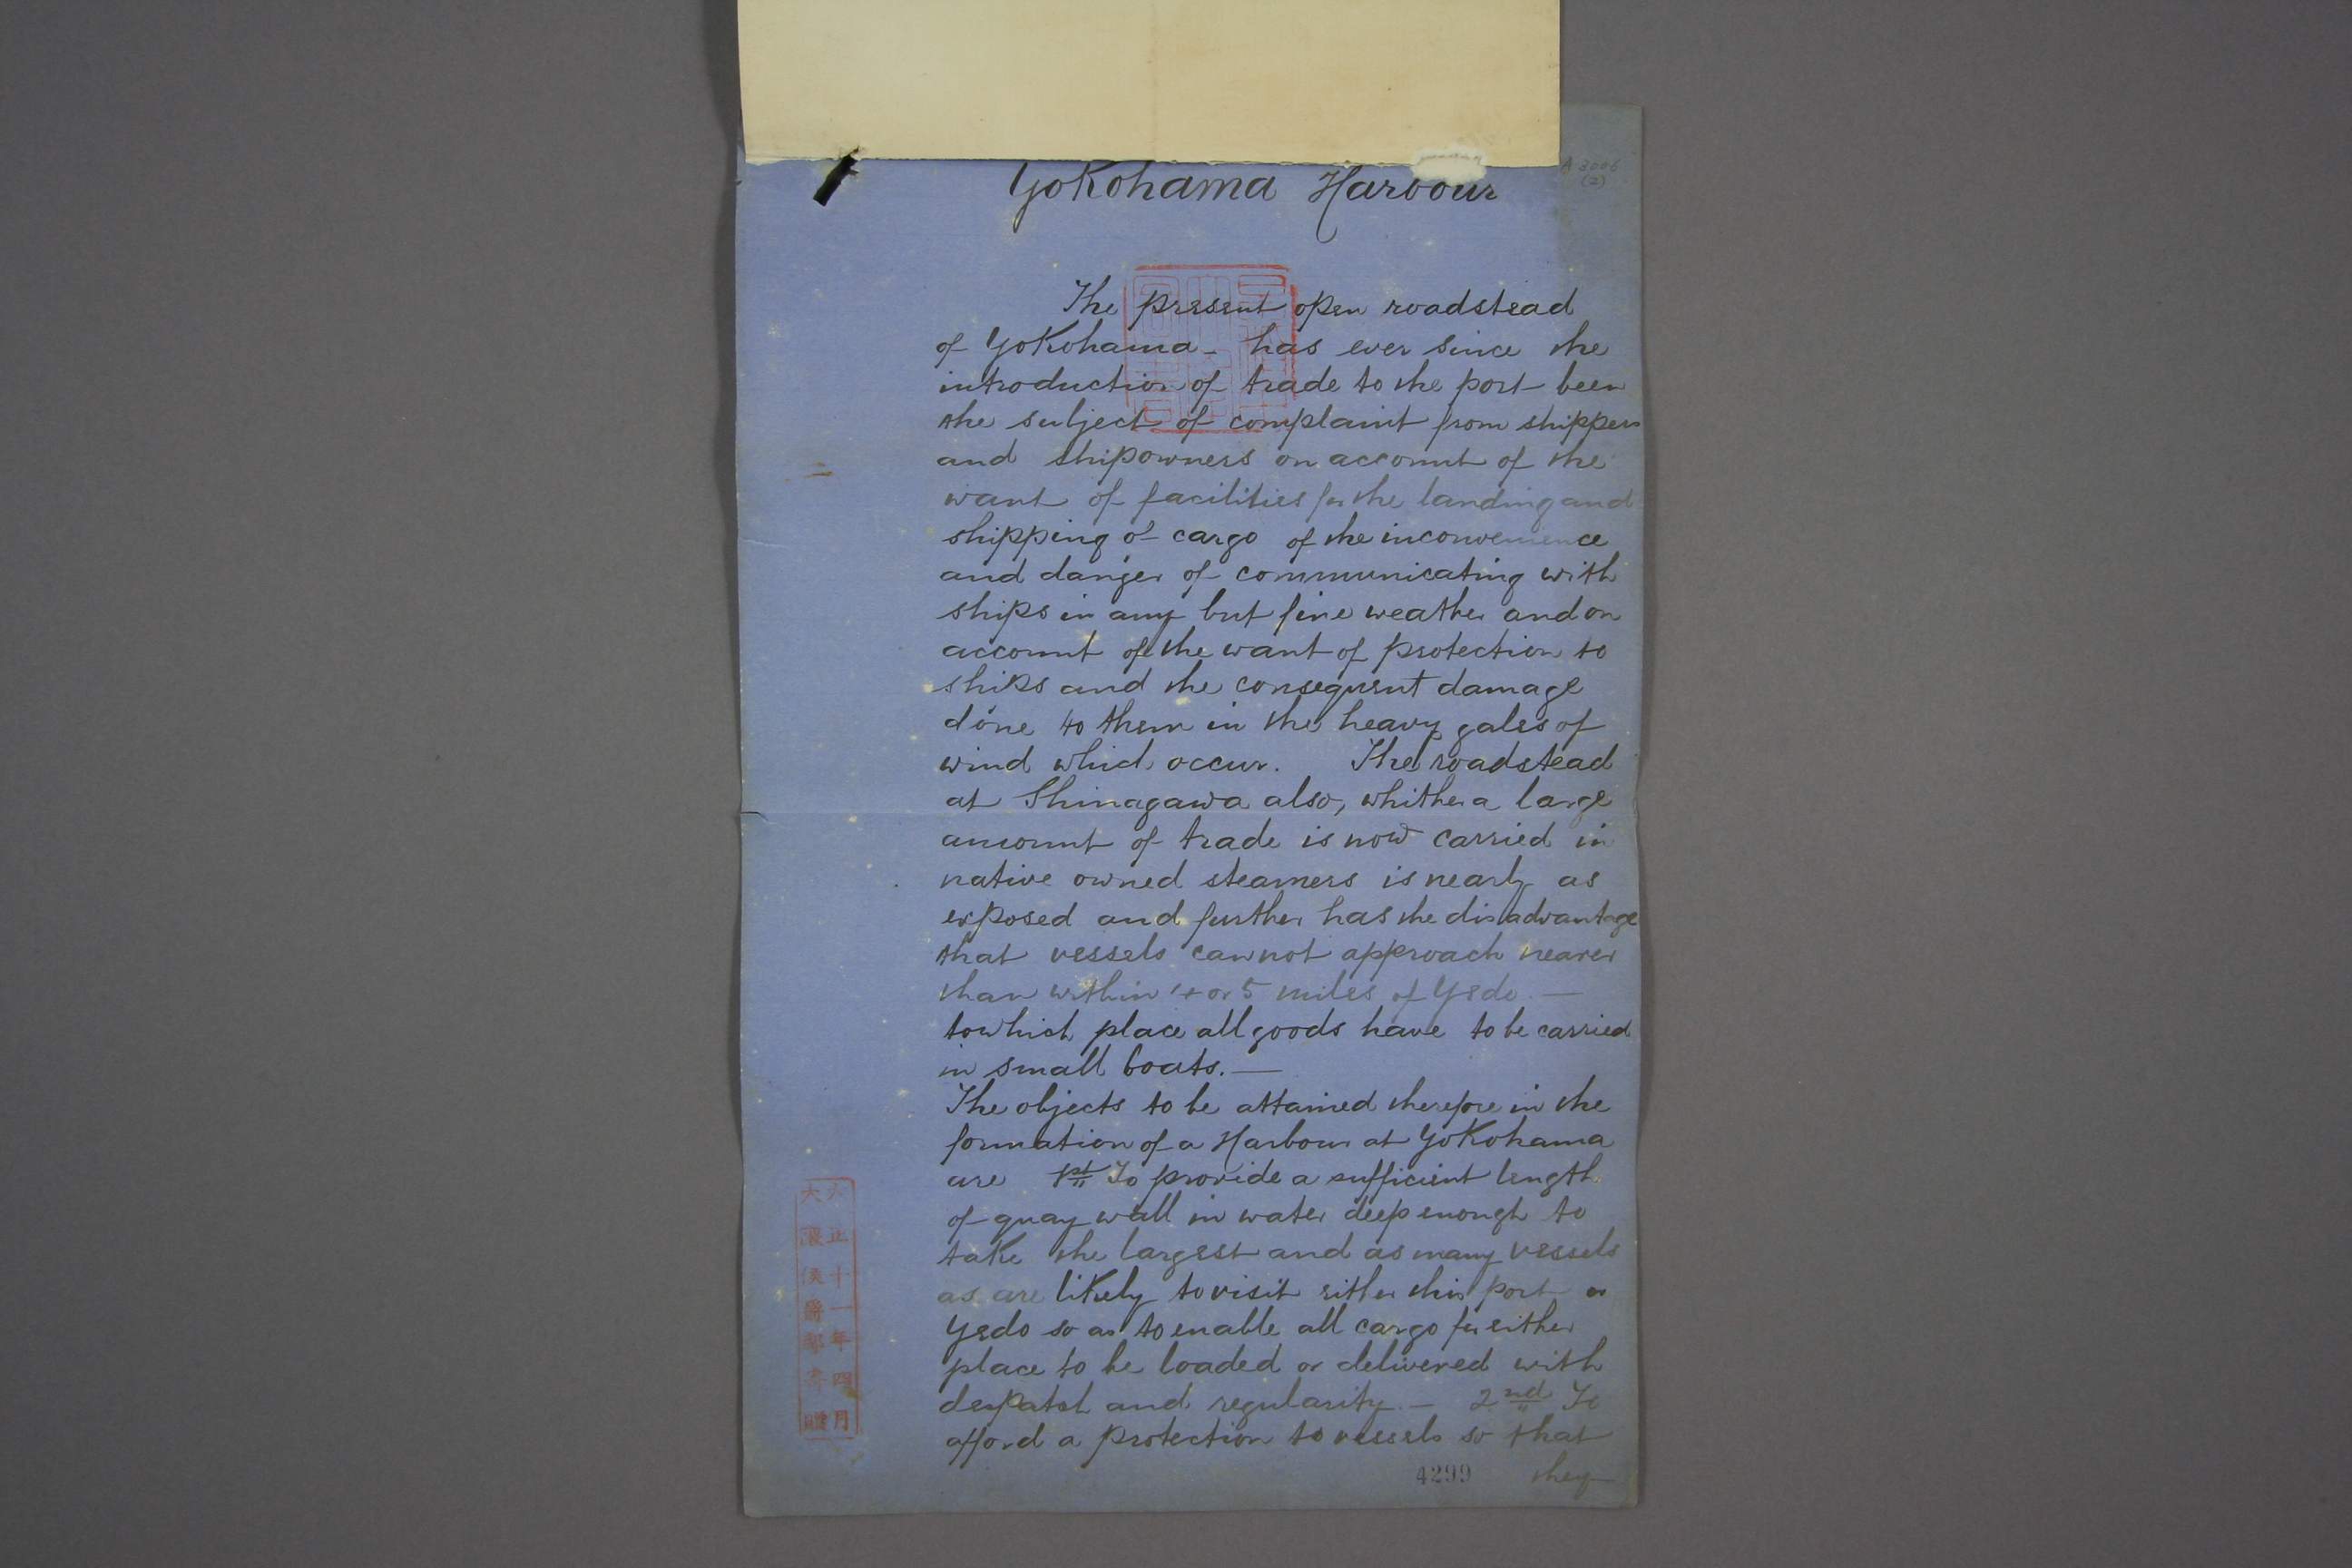 A 3006
(2)
Yokohama Harbour
The present open roadstead
of Yokohama - has ever since the
introduction of trade to the port been
the subject of complaint from shippers
and shipowners on account of the
want of facilities for the landing and
shipping of cargo of the inconvenience
and danger of communicating with
ships in any but fine weather and on
account of the want of protection to
ships and the consequent damage
done to them in the heavy gales of
wind which occur. The roadstead
at Shinagawa also, whither a large
amount of trade is now carried in
native owned steamers is nearly as
exposed and further has the disadvantage
that vessels cannot approach nearer
than within 4 or 5 miles of Yedo. —
to which place all goods have to be carried
in small boats. —
The objects to be attained therefore in the
formation of a Harbour at Yokohama
are 1st To provide a sufficient length
of quay wall in water deep enough to
take the largest and as many vessels
as are likely to visit either this port or
Yedo so as to enable all cargo for either
place to be loaded or delivered with
despatch and regularity. — 2nd To
afford a protection to vessels so that
they
大正十一年四月
大隈侯爵邸寄贈
4299